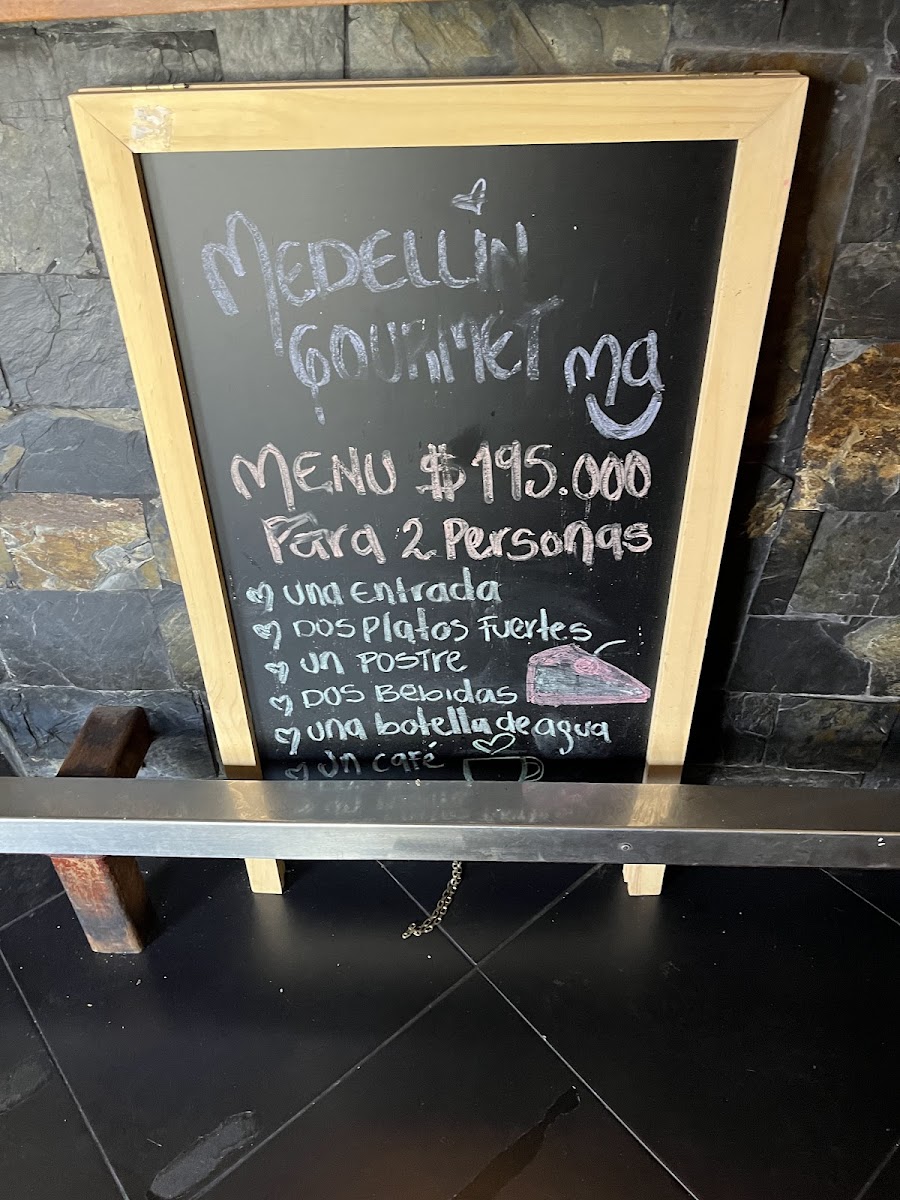 MEDELLIN
GOURMET
mg
MENU $195.000
Para 2 Personas
una Entrada
DOS Platos Fuertes
un POSTRE
DOS Bebidas
una botella de agua
Un café